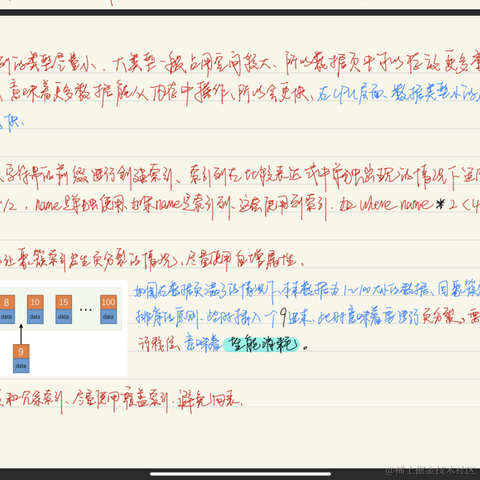 列的类型尽量小、大类型一般占用空间较大、所以数据页中可以存放更多
意味着更多数据能从内存中操作、所以会更快、在CPU层面、数据类型小的
快、
字符串的前缀进行创建索引、索引列在比较表达式中单独出现的情况下
/2，name是单独使用、如果name是索引列、这会使用到索引、如 where name * 2 < 4
让聚簇索引产生页分裂的情况、尽量使用自增属性、
8 10 15 ... 100
data data data data
9
data
如图在数据页满了的情况下、本来数据为1~100大小的数据、因聚簇
排序的原则、此时插入一个9进来、此时意味着要进行页分裂、
记录移位 意味着 性能消耗。
和冗余索引、尽量使用覆盖索引、避免回表、
@稀土掘金技术社区